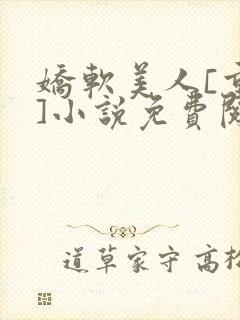 嬌軟美人[重
]小說免費閱
道草家守高松